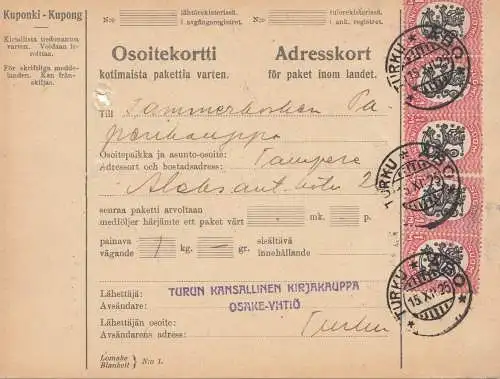 Kuponki - Kupong
Kirjallista tiedonantoa
varten. Voidaan ir-
rottaa.
För skriftliga medde-
landen. Kan från-
skiljas.
N:o lähtörekisterissä.
i avgångsregistret.
N:o tulorekisterissä.
i ank. registret.
Osoitekortti Adresskort
kotimaista pakettia varten. för paket inom landet.
Till Tammerkosken Pa-
perikauppa
Osoitepaikka ja asunto-osoite:
Adressort och bostadsadress: Tampere
seuraa paketti arvoltaan
medföljer härmed ett paket värt mk. p.
painava 1 kg. — gr. sisältävä
vägande innehållande
Lähettäjä: TURUN KANSALLINEN KIRJAKAUPPA
Avsändare: OSAKE-YHTIÖ
Lähettäjän osoite:
Avsändarens adress: Turku
Lomake
Blankett N:o 1.
TURKU ÅBO
15.XI.25
TURKU ÅBO
15.XI.25
TURKU ÅBO
15.XI.25